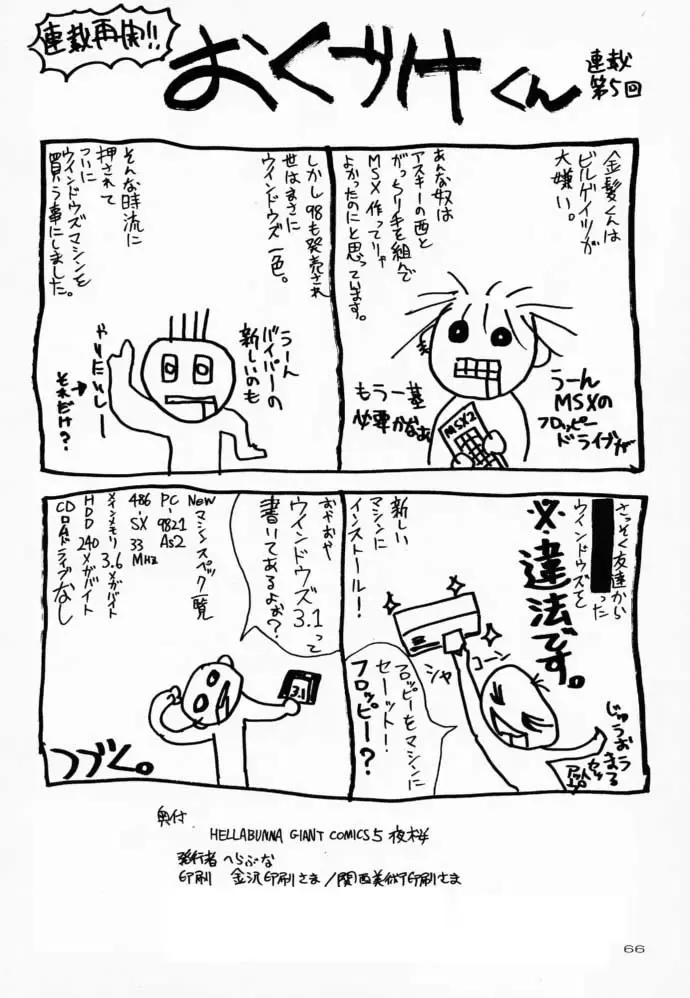 連載再開!!
おくづけくん
連載
第5回
金髪くんは
ビルゲイツが
大嫌い。
あんな奴は
アスキーの西と
がっちり手を組んで
MSX作ってりゃ
よかったのにと思っています。
うーん
MSXの
フロッピー
ドライブが
もう一基
必要かなぁ
MSX2
しかし98も発売され
世はまさに
ウインドウズ一色。
そんな時流に
押されて
ついに
ウインドウズマシンを
買う事にしました。
うーん
バイパーの
新しいのも
やりたいしー
それだけ?
さっそく友達から
った
ウインドウズを
※違法です。
新しい
マシンに
インストール!
コーン
シャ
フロッピーをマシンに
セーット!
フロッピー?
おやおや
ウインドウズ3.1って
書いてあるよぉ?
3.1
Newマシンスペック一覧
PC-9821As2
486SX33MHz
メインメモリ3.6メガバイト
HDD240メガバイト
CDロムドライブなし
つづく。
奥付
HELLABUNNA GIANT COMICS 5 夜桜
発行者 へらぶな
印刷 金沢印刷さま/関西美術印刷さま
66